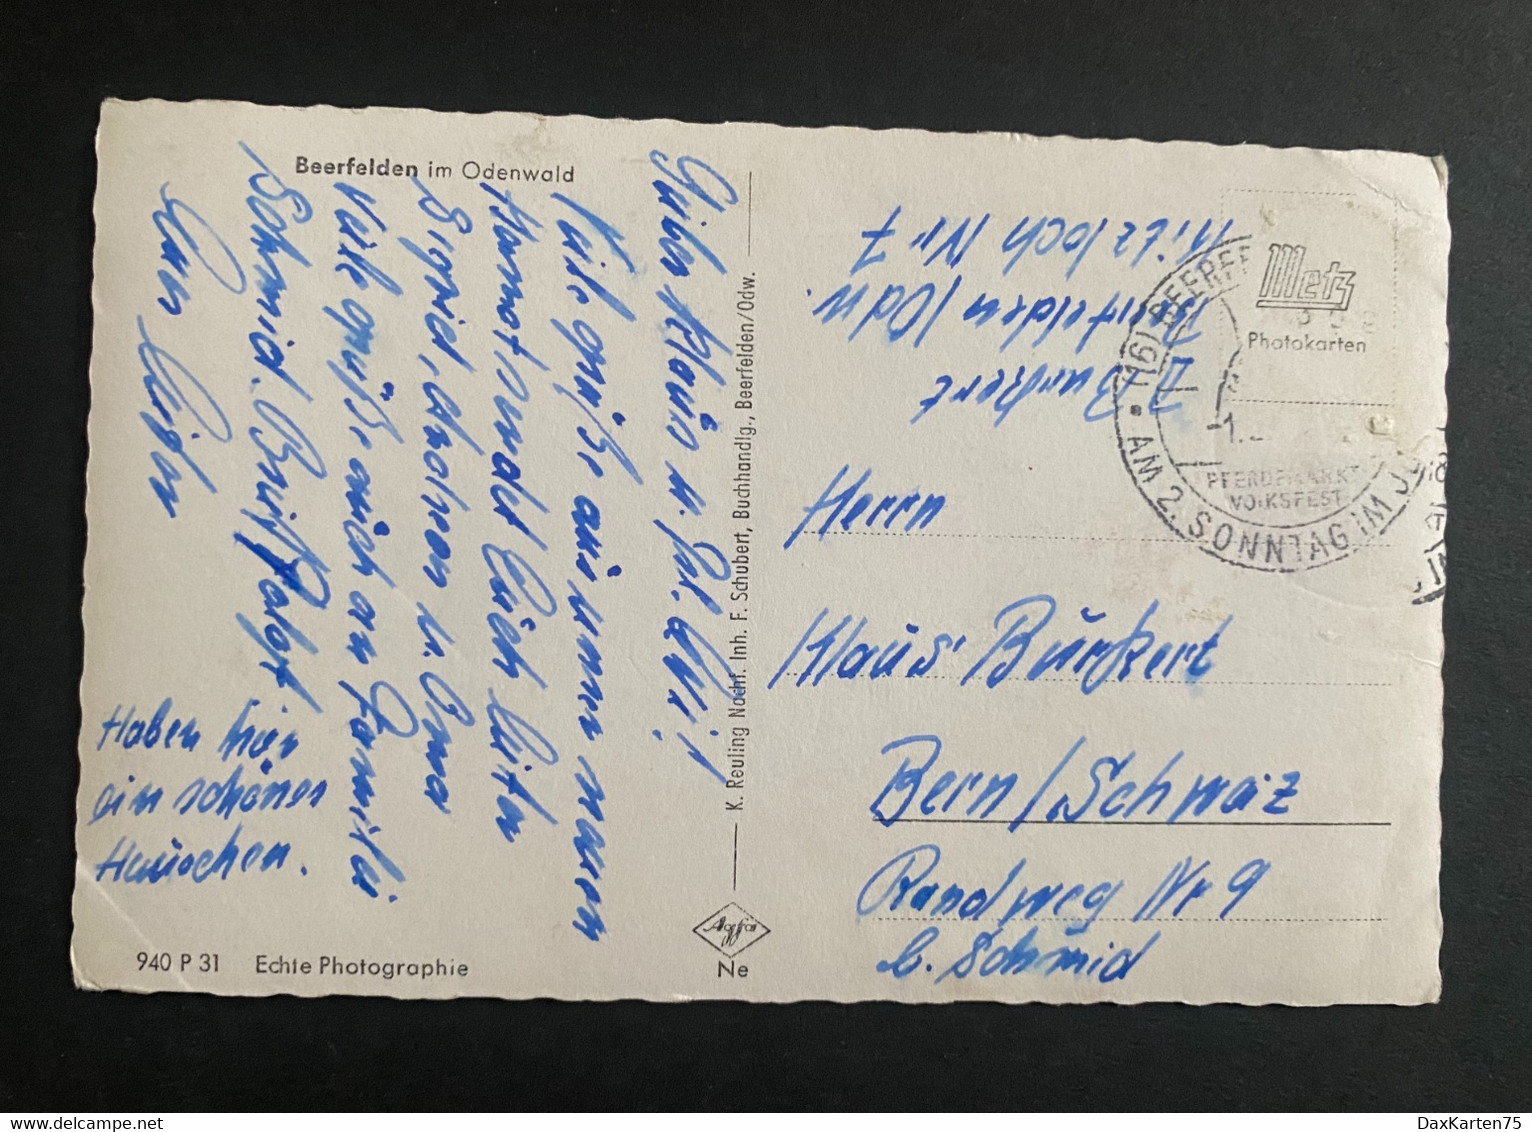 Beerfelden im Odenwald
Lieber Klaus u. Frl. Uli!
Viele Grüße aus unser neuen
Heimat sendet Euch
Sigrid, Jochen u. Oma
Viele Grüße auch an Familie
Schmid. Brief folgt
Haben hier
ein schönes
Häuschen.
940 P 31 Echte Photographie
K. Reuling Nachf. Inh. F. Schubert, Buchhandlg., Beerfelden/Odw.
Agfa
Ne
Burkert
Beerfelden/Odw.
Nr 7
Metz
Photokarten
(16) BEERFE
-1.
PFERDEMARKT
VOLKSFEST
AM 2. SONNTAG IM J
Herrn
Klaus Burkert
Bern/Schweiz
Randweg Nr 9
b. Schmid
DaxKarten75